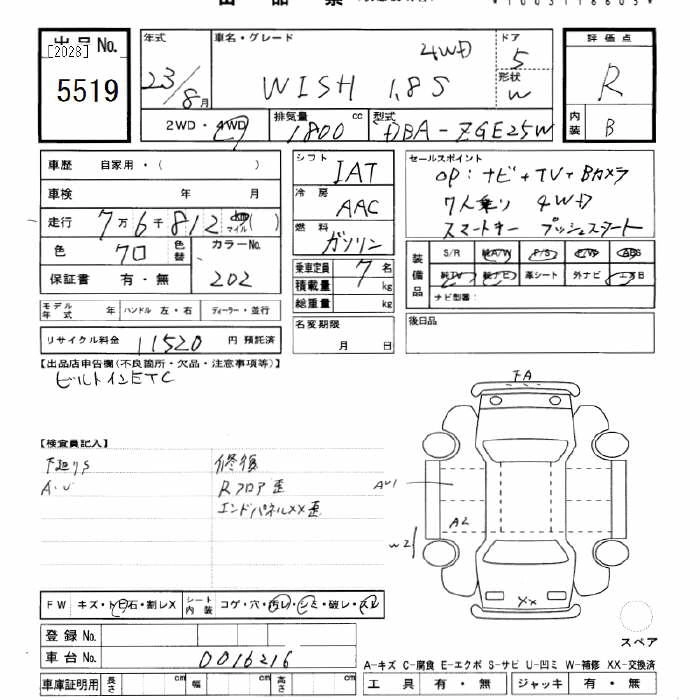 出品No.
[2028]
5519
年式
23/8月
車名・グレード
WISH 1.8S 4WD
ドア
5
形状
W
2WD・4WD
排気量
1800cc
型式
DBA-ZGE25W
評価点
R
内装
B
車歴 自家用・( )
車検 年 月
走行 7万6千812 km マイル( )
色 クロ 色替 カラーNo. 202
保証書 有・無
モデル年式 年 ハンドル 左・右 ディーラー・並行
リサイクル料金 11520円預託済
シフト IAT
冷房 AAC
燃料 ガソリン
乗車定員 7名
積載量 kg
総重量 kg
名変期限
月 日
セールスポイント
OP:ナビ+TV+Bカメラ
7人乗り 4WD
スマートキー プッシュスタート
装備品
S/R 純A/W P/S P/W ABS
純TV 純ナビ 革シート 外ナビ エアB
ナビ型番:
後日品
【出品店申告欄(不良箇所・欠品・注意事項等)】
ビルトインETC
【検査員記入】
下廻りS
A・U
修復
Rフロア歪
エンドパネルXX歪
FA
AU1
A2
W2
XX
FW キズ・トビ石・割レX シート内装 コゲ・穴・汚レ・シミ・破レ・スレ
登録No.
車台No. 0016216
車庫証明用 長さ cm 幅 cm 高さ cm
スペア
A-キズ C-腐食 E-エクボ S-サビ U-凹ミ W-補修 XX-交換済
工具 有・無 ジャッキ 有・無